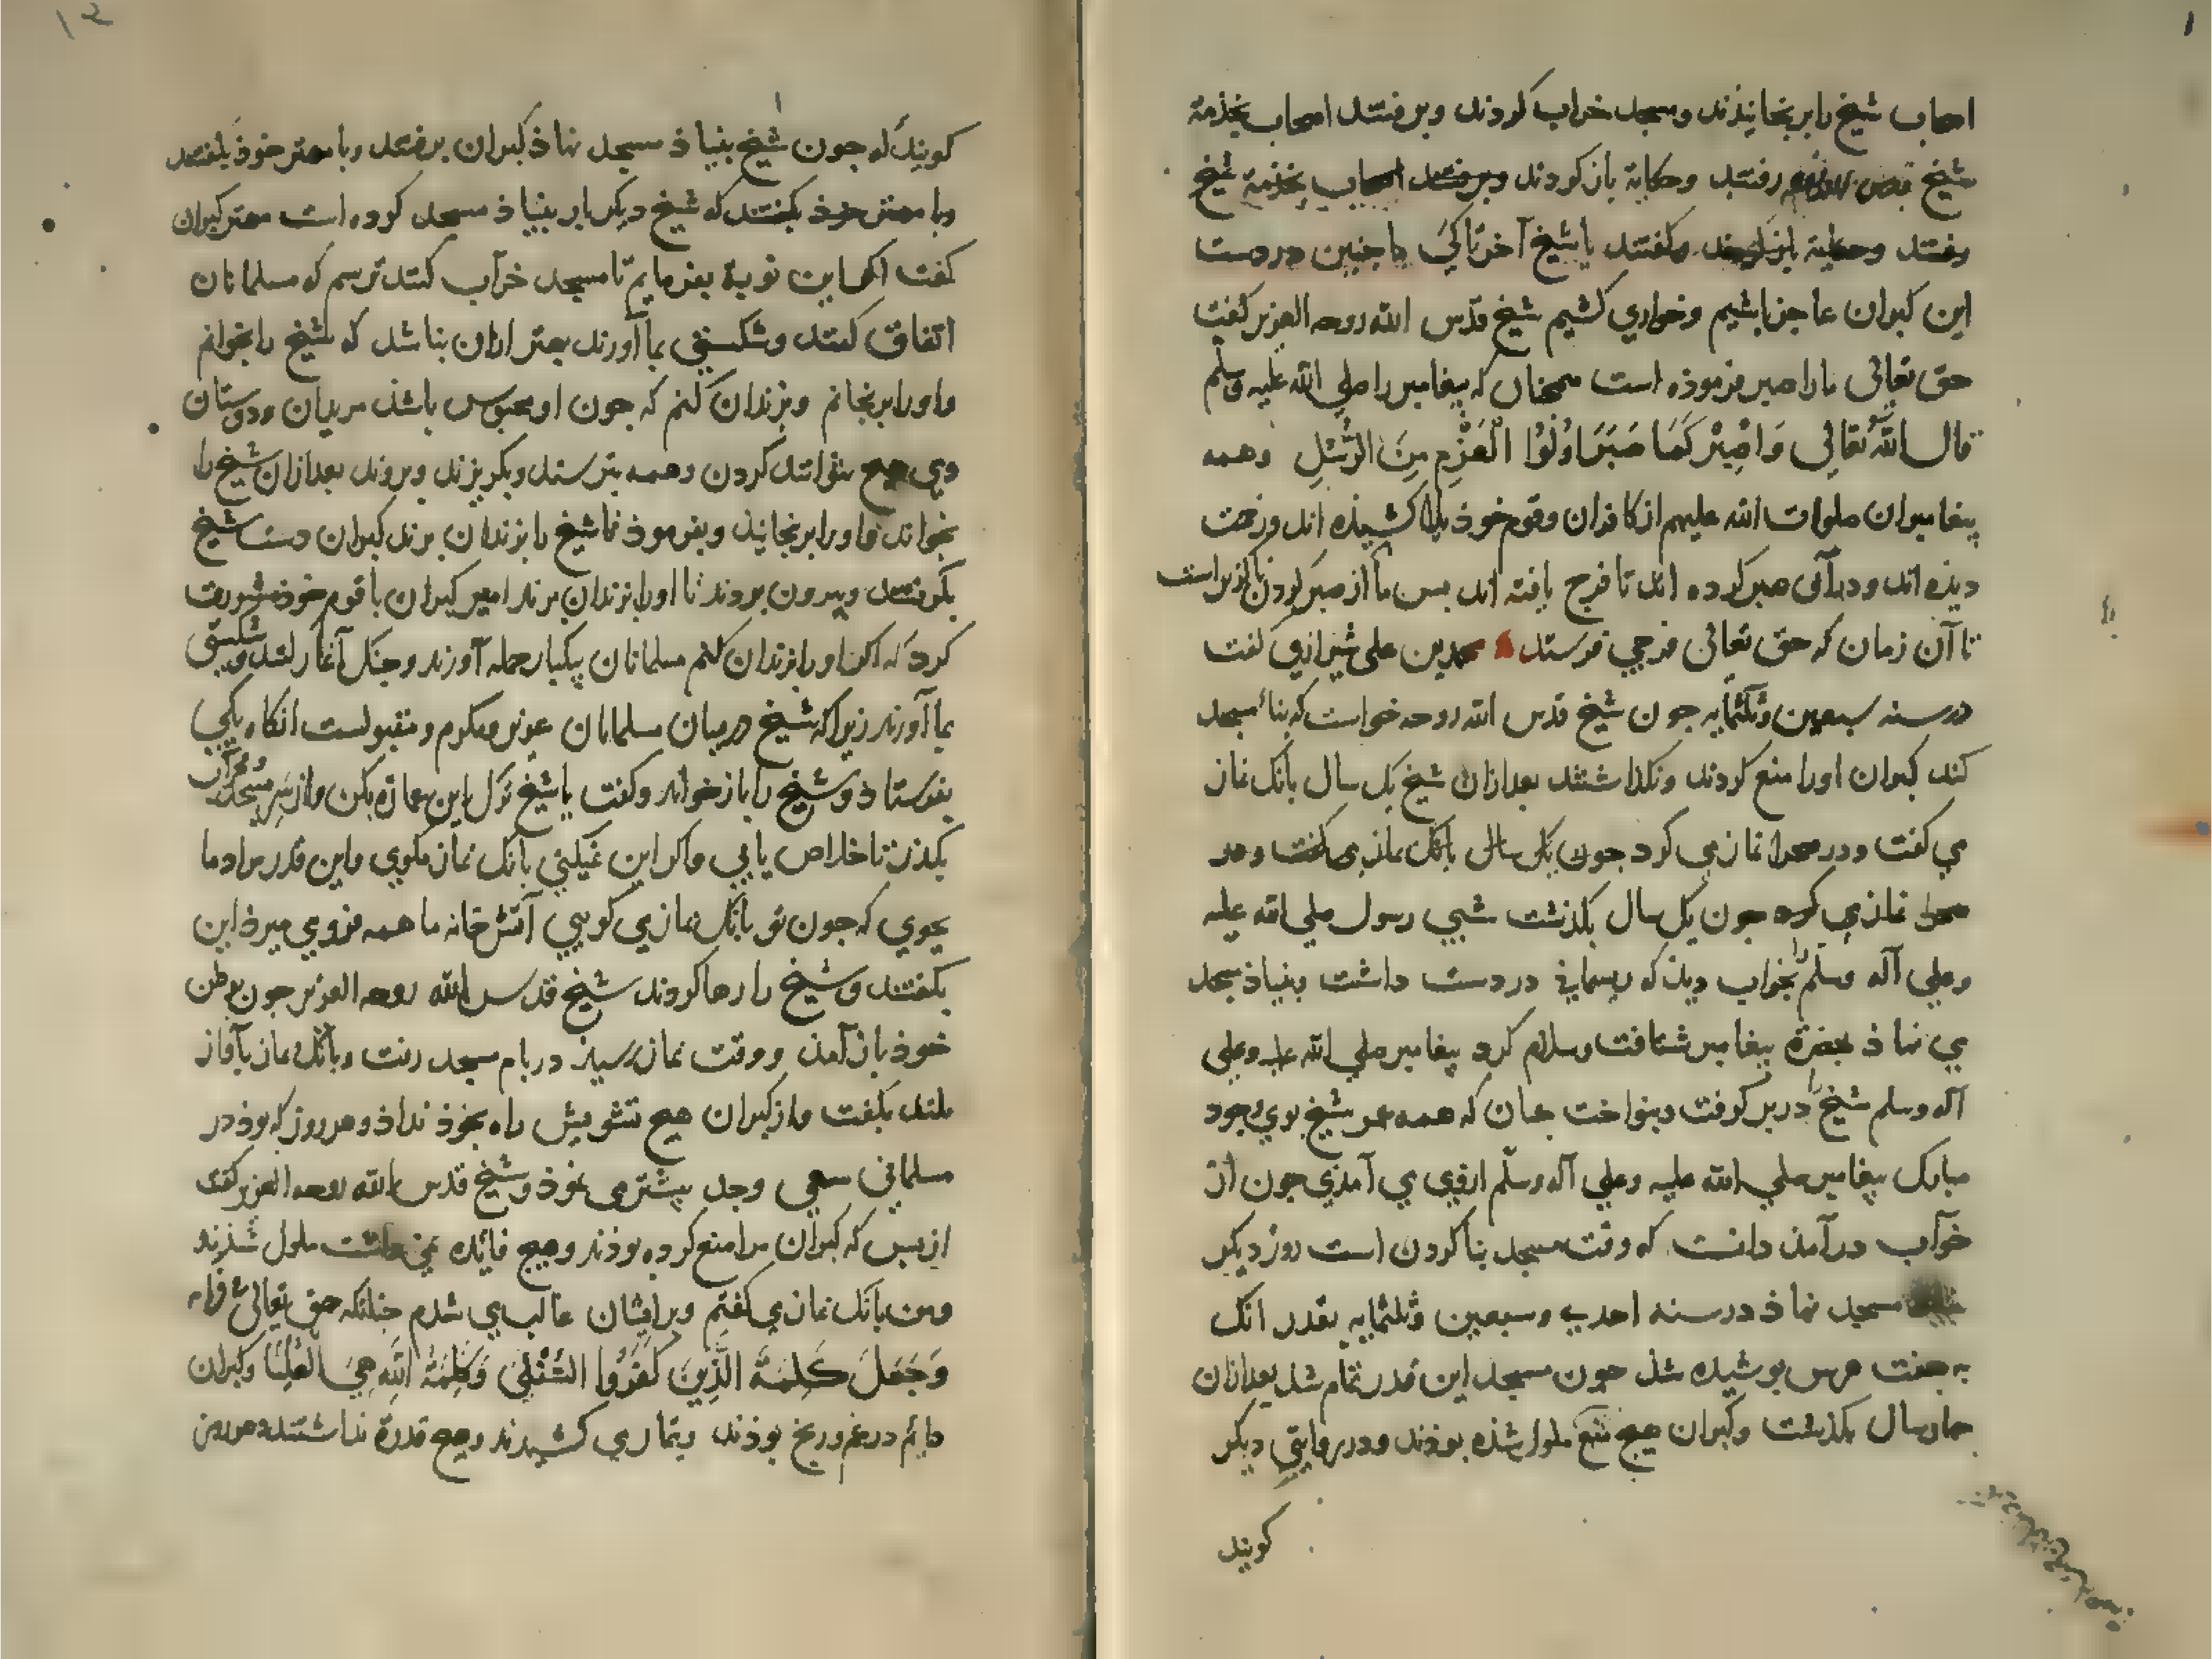 اصحاب شیخ را برنجانیذند و مسجد خراب کردند و برفتند اصحاب بخذمة
شیخ رفتند و حکایة باز کردند و برفتند اصحاب بخذمة شیخ
رفتند و گفتند یا شیخ آخر تا کی ما جنین در دست
این کبران عاجز باشیم و خواری کشیم شیخ قدس الله روحه العزیز کفت
حق تعالی ما را صبر فرموذه است همچنان که پیغامبر را صلی الله علیه وسلم
قال الله تعالی وَاصْبِرْ كَمَا صَبَرَ اُولُوا الْعَزْمِ مِنَ الرُّسُلِ وهمه
پیغامبران صلوات الله علیهم از کافران و قوم خوذ بلا کشیذه اند و زحمت
دیذه اند و در آن صبر کرده اند تا فرج یافته اند بس ما را از صبر کردن ناکزیر است
تا آن زمان که حق تعالی فرجی فرستد محمد بن علی شیرازی کفت
در سنه سبعین وثلثمایه جون شیخ قدس الله روحه خواست که بناء مسجد
کند کبران او را منع کردند و نکذاشتند بعد ازان شیخ یک سال بانک نماز
می کفت و در صحرا نماز می کرد جون یک سال بانک نماز می کفت و در
صحرا نماز می کرد جون یک سال بکذشت شبی رسول صلی الله علیه
وعلی آله وسلم را بخواب دیذ که ریسمانی در دست داشت و بنیاذ مسجد
می نهاذ بحضرة پیغامبر شتافت و سلام کرد پیغامبر صلی الله علیه وعلی
آله وسلم شیخ را در بر کرفت و بنواخت جنان که همه عمر شیخ بوی وجود
مبارک پیغامبر صلی الله علیه وعلی آله وسلم ازوی می آمذی جون از
خوآب درآمذ دانست که وقت مسجد بنا کردن است روز دیکر
مسجد نهاذ در سنه احدی وسبعین وثلثمایه بقدر انک
به هفت عرس بوشیده شذ جون مسجد این قدر تمام شد بعد ازان
جهار سال بکذشت و کبران هیج منع ملول شذه بوذند و در روایتی دیکر
کویند
کویند که جون شیخ بنیاذ مسجد نهاذ کبران برفتند و با مهتر خوذ بکفتند
وبا مهتر خوذ بکفتند که شیخ دیکر بار بنیاذ مسجد کرده است مهتر کبران
کفت اکر این نوبة بفرمایم تا مسجد خرآب کنند ترسم که مسلمانان
اتفاق کنند و شکستی بما آورند بهتر ازان نباشد که شیخ را بخوانم
و او را برنجانم و بزندان کنم که جون او محبوس باشد مریدان و دوستان
وی هیج نتوانند کردن و همه بترسند و بکریزند و بروند بعد ازان شیخ را
بخواند و او را برنجانیذ و بفرموذ تا شیخ را بزندان برند کبران دست شیخ
بکرفتند و بیرون بردند تا او را بزندان برند امیر کبران با قوم خوذ مشورت
کرد که اکر او را بزندان کنم مسلمانان بیکبار حمله آورند و جنک آغاز کنند و شکستی
بما آورند زیرا که شیخ در میان مسلمانان عزیز و مکرم و مقبولست انکاه یکی
بفرستاذ و شیخ را باز خواند و کفت یا شیخ ترک این عمارة بکن و از سر مسجد و محرآب
بکذر تا خلاص یابی و اکر این نمیکنی بانک نماز مکوی و این قدر مراد ما
بجوی که جون تو بانک نماز می کویی آتش خانه ما همه فرو می میرد این
بکفتند و شیخ را رها کردند شیخ قدس الله روحه العزیز جون بوطن
خوذ باز آمذ و وقت نماز رسیذ در بام مسجد رفت و بانک نماز بآواز
بلند بکفت و از کبران هیج تشویش راه بخوذ نداذ و هر روز که بوذ در
مسلمانی سعی و جد بیشتر می نموذ و شیخ قدس الله روحه العزیز کفت
از بس که کبران مرا منع کرده بوذند و هیج فائده نمی داشت ملول شذند
ومن بانک نماز می کفتم و بر ایشان غالب می شدم جنانکه حق تعالی فرمود
وَجَعَلَ كَلِمَةَ الَّذِينَ كَفَرُوا السُّفْلَى وَكَلِمَةُ اللهِ هِيَ الْعُلْيَا و کبران
دایم در غم و رنج بوذند و تیماری کشیدند و هیج قدرة نداشتند و هر روز